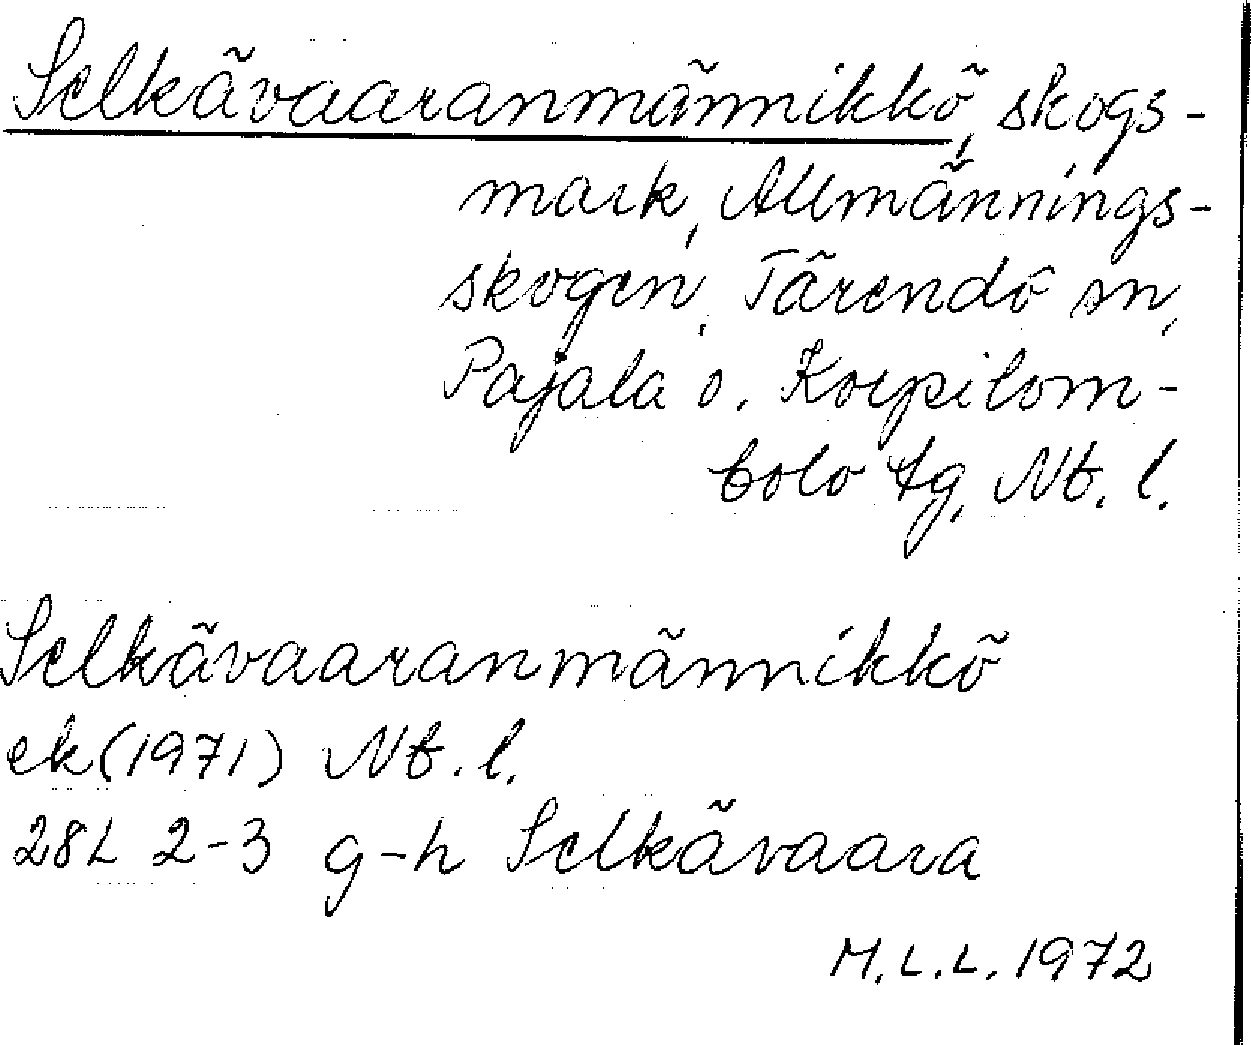 Selkävaaranmännikkö, skogs-
mark, Allmännings-
skogen, Tärendö sn,
Pajala o. Korpilom-
bolo tg, Nb. l.
Selkävaaranmännikkö
ek (1971) Nb. l.
28L 2-3 g-h Selkävaara
M.L.L. 1972